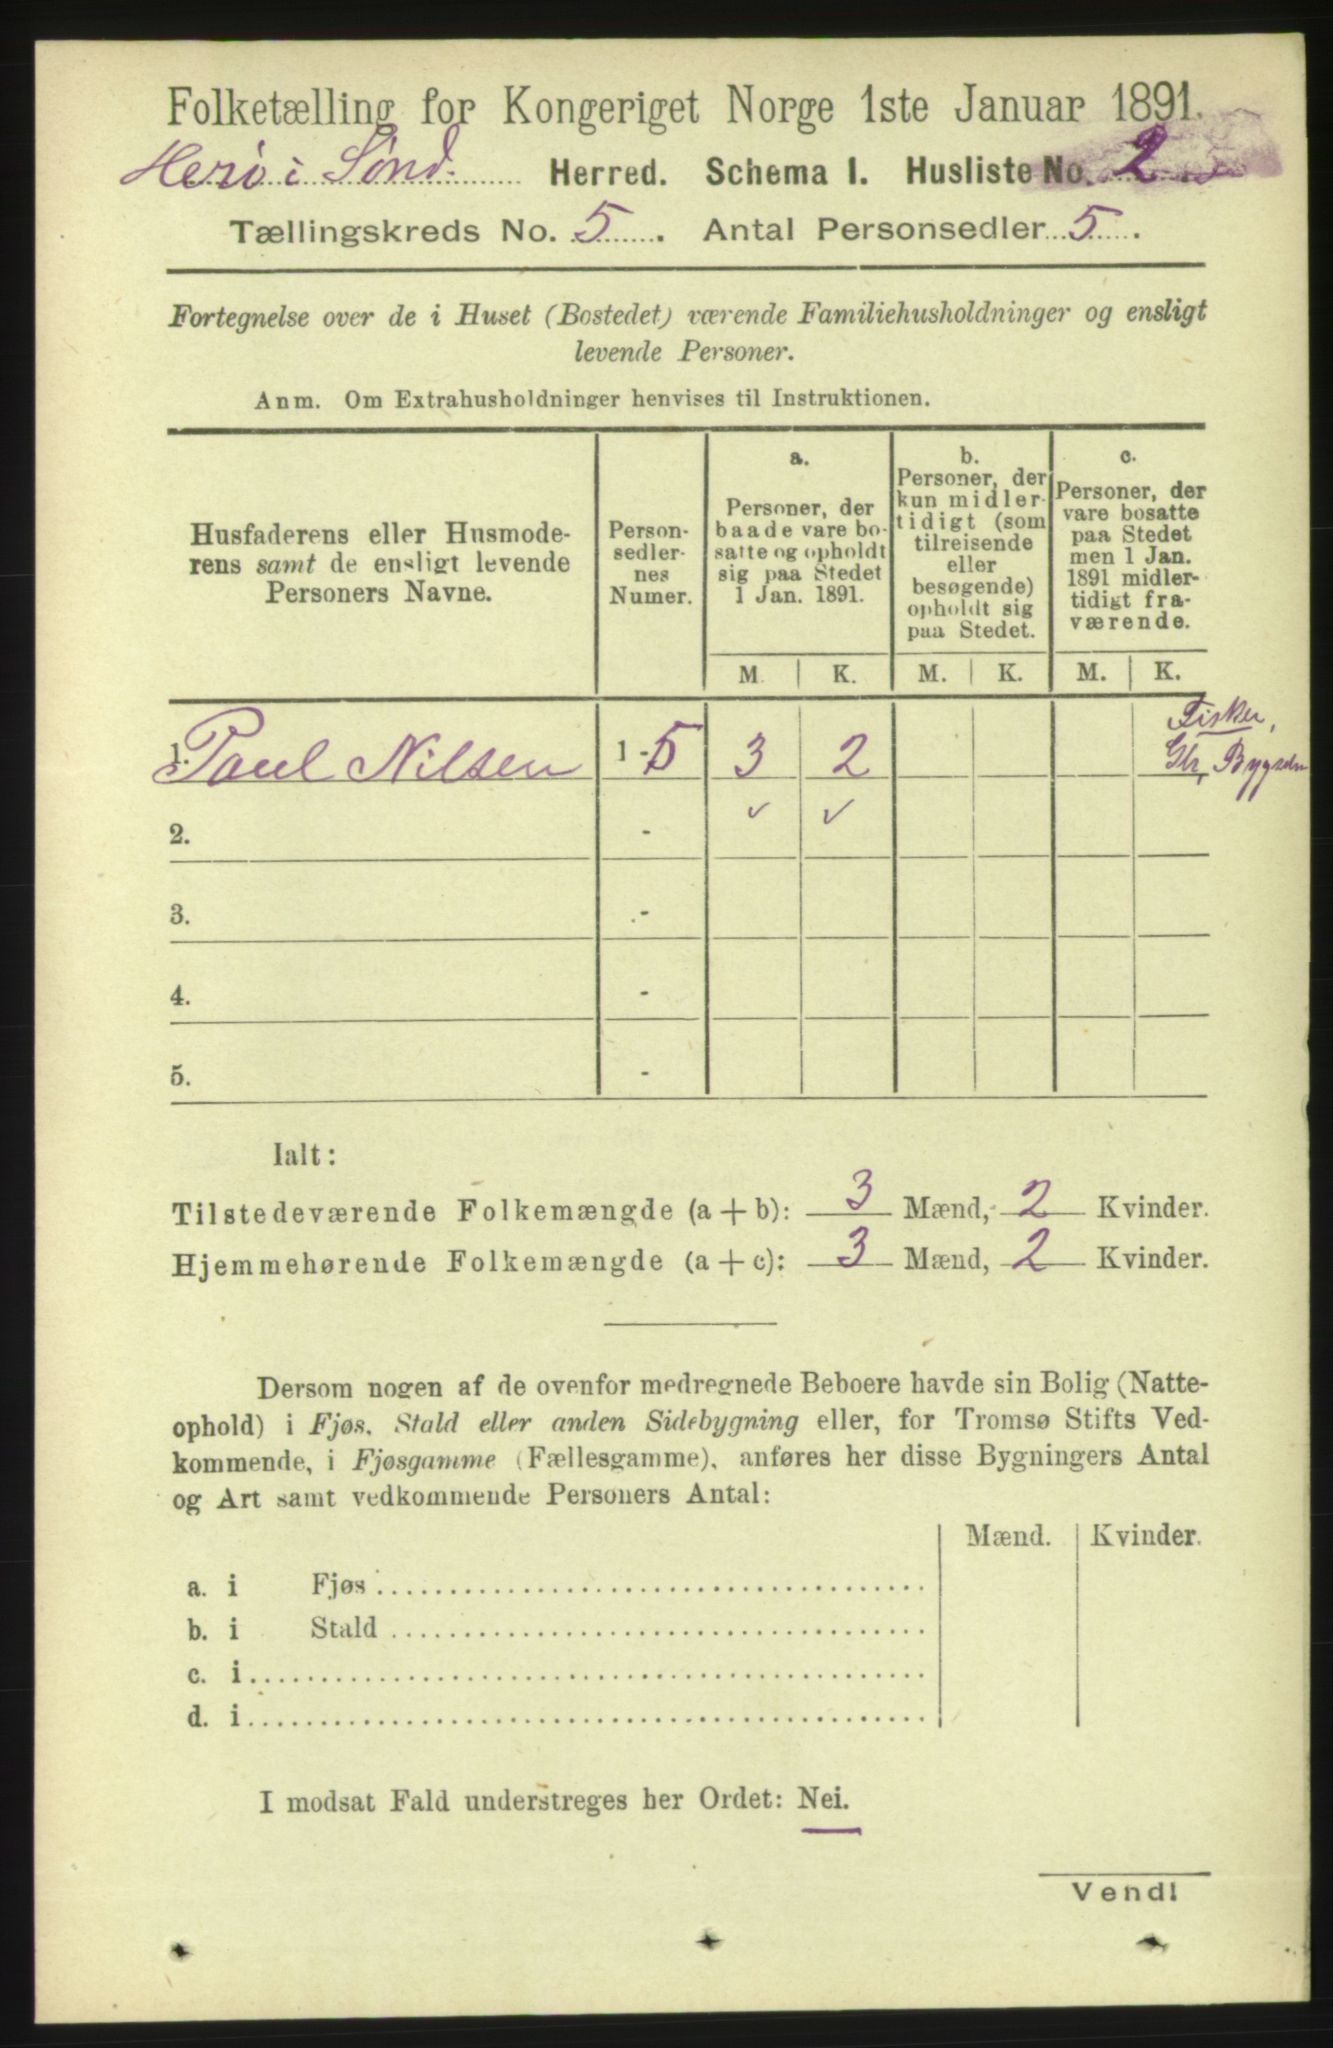 Folketælling for Kongeriget Norge 1ste Januar 1891.
Herø i Sønd. Herred. Schema I. Husliste No. 2.
Tællingskreds No. 5. Antal Personsedler 5.
Fortegnelse over de i Huset (Bostedet) værende Familiehusholdninger og ensligt
levende Personer.
Anm. Om Extrahusholdninger henvises til Instruktionen.
Husfaderens eller Husmode-
rens samt de ensligt levende
Personers Navne.
Person-
sedler-
nes
Numer.
a.
Personer, der
baade vare bo-
satte og opholdt
sig paa Stedet
1 Jan. 1891.
b.
Personer, der
kun midler-
tidigt (som
tilreisende
eller
besøgende)
opholdt sig
paa Stedet.
c.
Personer, der
vare bosatte
paa Stedet
men 1 Jan.
1891 midler-
tidigt fra-
værende.
M. K. M. K. M. K.
1. Paul Nilsen 1-5 3 2 Fisker,
Gbr, Bygseln
2. - ✓ ✓
3. -
4. -
5. -
Ialt:
Tilstedeværende Folkemængde (a + b): 3 Mænd, 2 Kvinder.
Hjemmehørende Folkemængde (a + c): 3 Mænd, 2 Kvinder.
Dersom nogen af de ovenfor medregnede Beboere havde sin Bolig (Natte-
ophold) i Fjøs, Stald eller anden Sidebygning eller, for Tromsø Stifts Ved-
kommende, i Fjøsgamme (Fællesgamme), anføres her disse Bygningers Antal
og Art samt vedkommende Personers Antal:
Mænd. Kvinder.
a. i Fjøs
b. i Stald
c. i
d. i
I modsat Fald understreges her Ordet: Nei.
Vend!